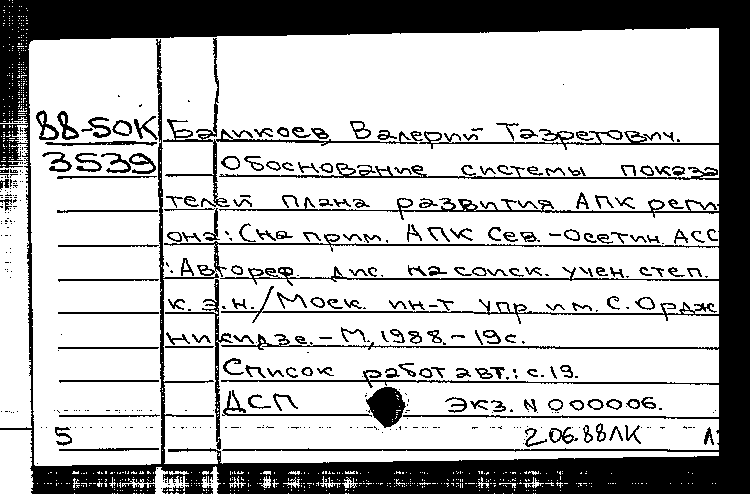 88-50К Баликоев Валерий Тазретович.
3539 Обоснование системы показа
телей плана развития АПК реги-
она: (на прим. АПК Сев.-Осетин. АСС
: Автореф. дис. на соиск. учен. степ.
к.э.н. / Моск. ин-т упр. им. С. Ордж
никидзе. - М., 1988. - 19 с.
Список работ авт.: с. 19.
ДСП Экз. N 000006.
5 2.06.88 ЛК